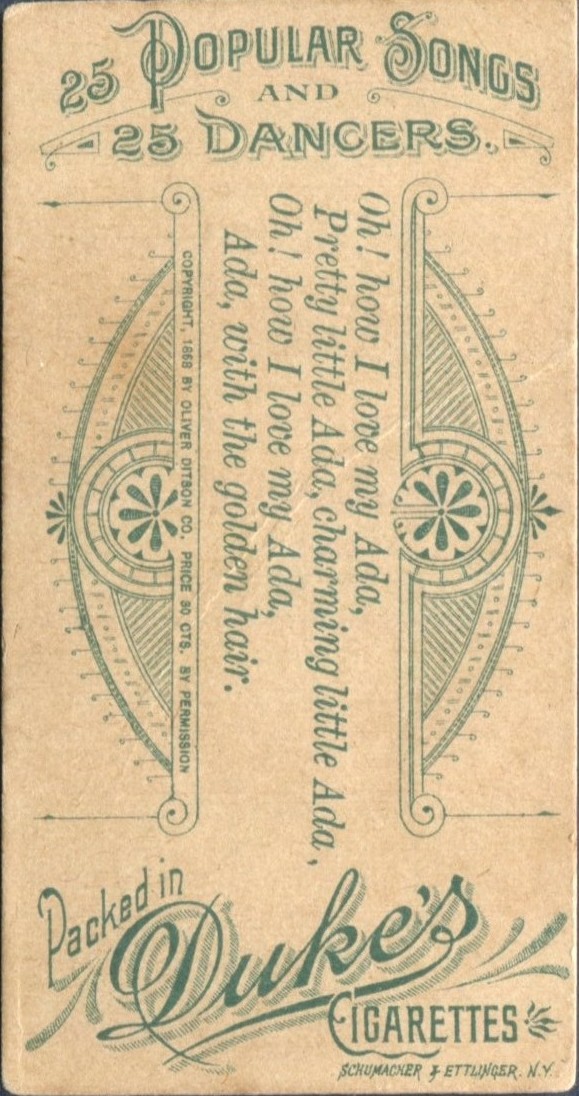 25 POPULAR SONGS
AND
25 DANCERS.
Oh! how I love my Ada,
Pretty little Ada, charming little Ada,
Oh! how I love my Ada,
Ada, with the golden hair.
COPYRIGHT, 1868 BY OLIVER DITSON CO. PRICE 30 CTS. BY PERMISSION
Packed in
Duke's
CIGARETTES
SCHUMACHER & ETTLINGER. N.Y.